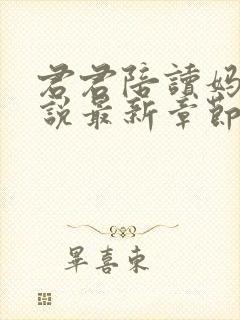 君君陪讀妈
說最新章節
畢喜東